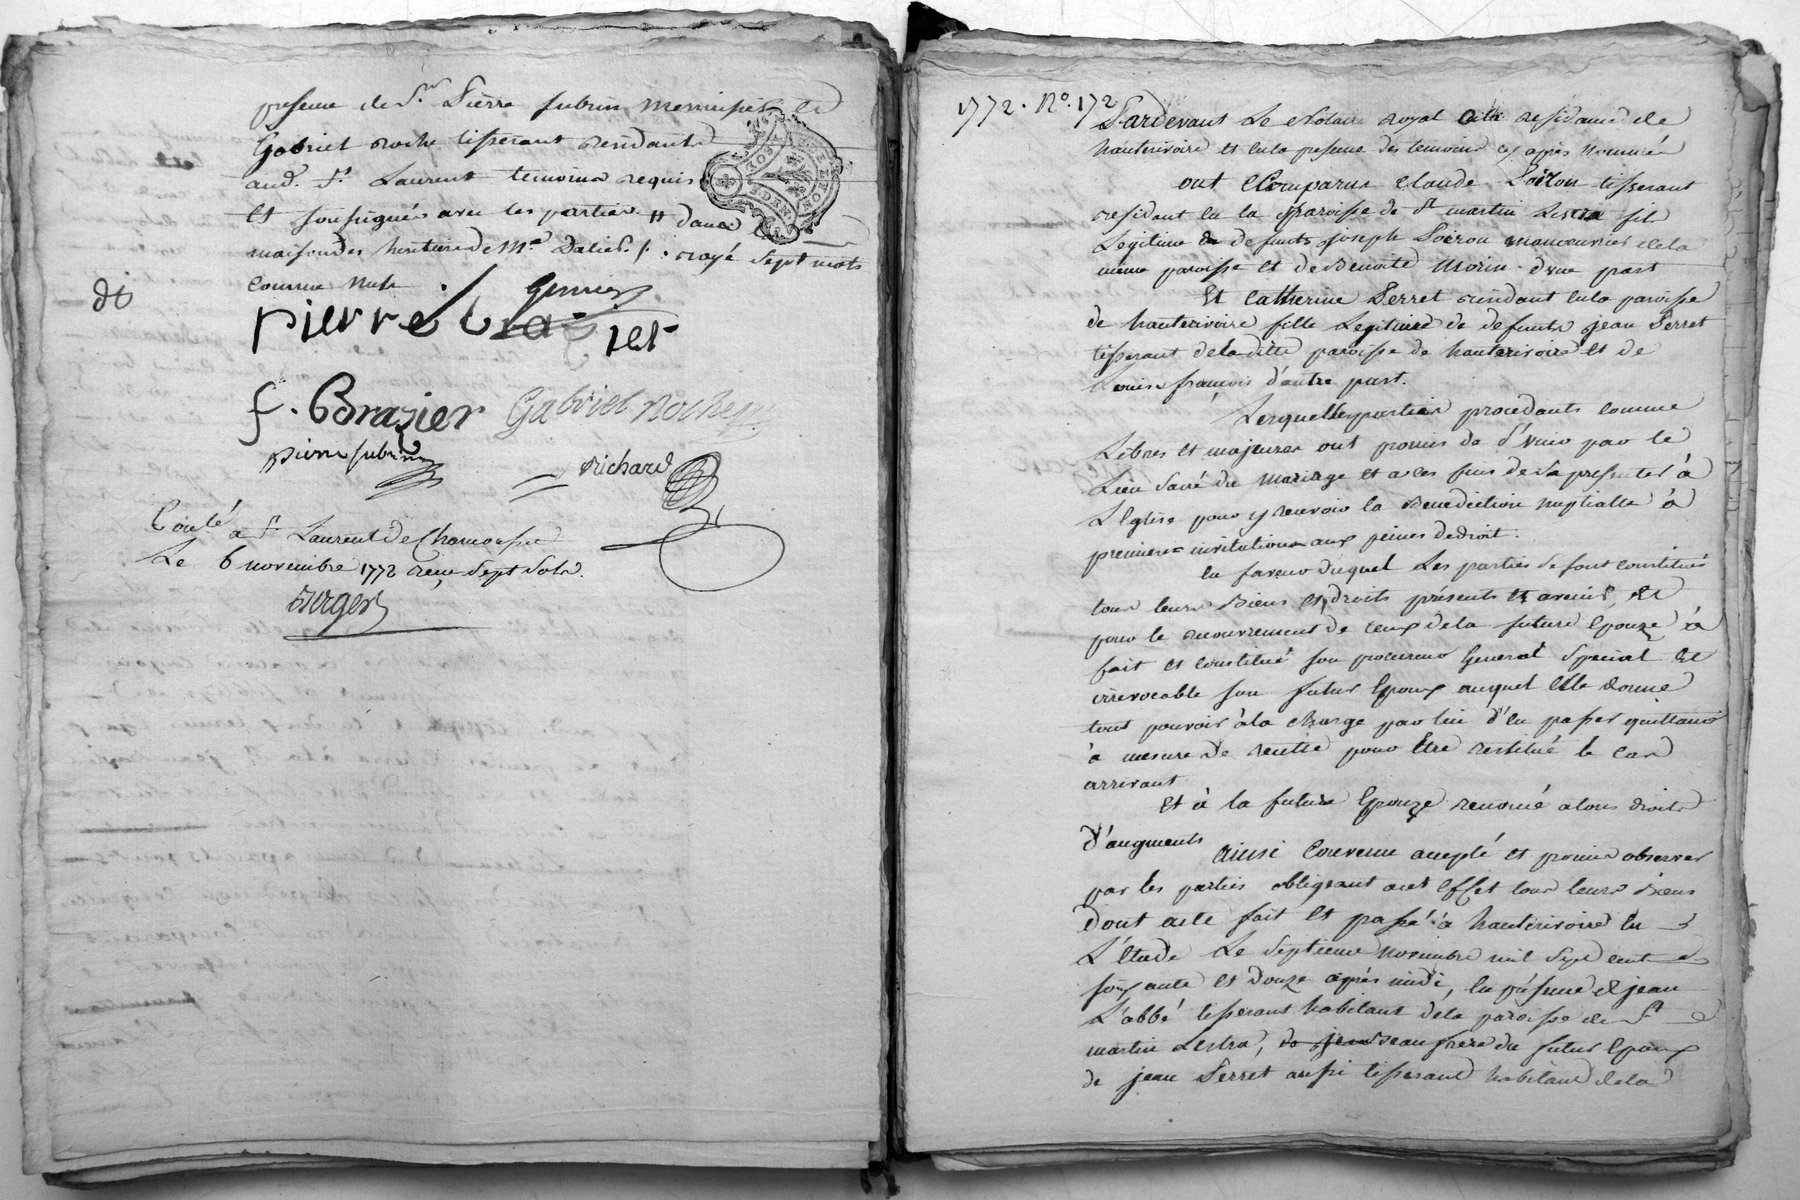 presence de Sr. Pierre subrin menuisier et
Gabriel Roche tisserant residants
aud. St. Laurent temoins requis
et soussignés avec les parties # dans
maison des heritiers de Me Dalier /. rayé sept mots
comme nuls
di
pierre brazier
f. Brazier Gabriel Roche
pierre subrin
Richard
Conté à St Laurent de Chamousset
Le 6 novembre 1772 reçu sept sols.
Berger
1772. No. 172
Pardevant Le Notaire royal à la residance de
hauterivoire et en la presence des temoins cy après nommés
ont Comparus Claude Poiron tisserant
residant en la Paroisse de St martin Lestra fils
Legitime de defunts joseph Poiron manoeuvrier de la
même paroisse et de Benoite Morin d'une part
Et Catherine Perret residant en la paroisse
de hauterivoire fille Legitime de defunts jean Perret
tisserant de laditte paroisse de hauterivoire et de
Louise françois d'autre part.
Lesquelles parties procedants comme
Libres et majeures ont promis de s'unir par le
Lien sacré du Mariage et a ces fins de se presenter à
L'Eglise pour y recevoir la Benediction nuptialle à
premiere invitation aux peines de droit.
En faveur duquel Les parties se sont constitués
tous leurs Biens et droits présents et avenir, Et
pour le recouvrement de ceux de la future Epouze à
fait et constitué son procureur General Special Et
irrevocable son futur Epoux auquel Elle donne
tout pouvoir à la charge par lui d'en passer quittance
à mesure de recette pour Etre restitué le cas
arrivant
Et à la future Epouze renoncé a tous droits
d'augments
Ainsi Convenu accepté et promis observer
par les parties obligeant a cet Effet tous leurs Biens
Dont acte fait Et passé à hauterivoire En
L'étude Le septieme novembre mil sept cent
soixante et Douze après midi, En présence de jean
L'abbé tisserant habitant de la paroisse de St
martin Lestra, beaufrere du futur Epoux
de jean Perret aussi tisserand habitant de la